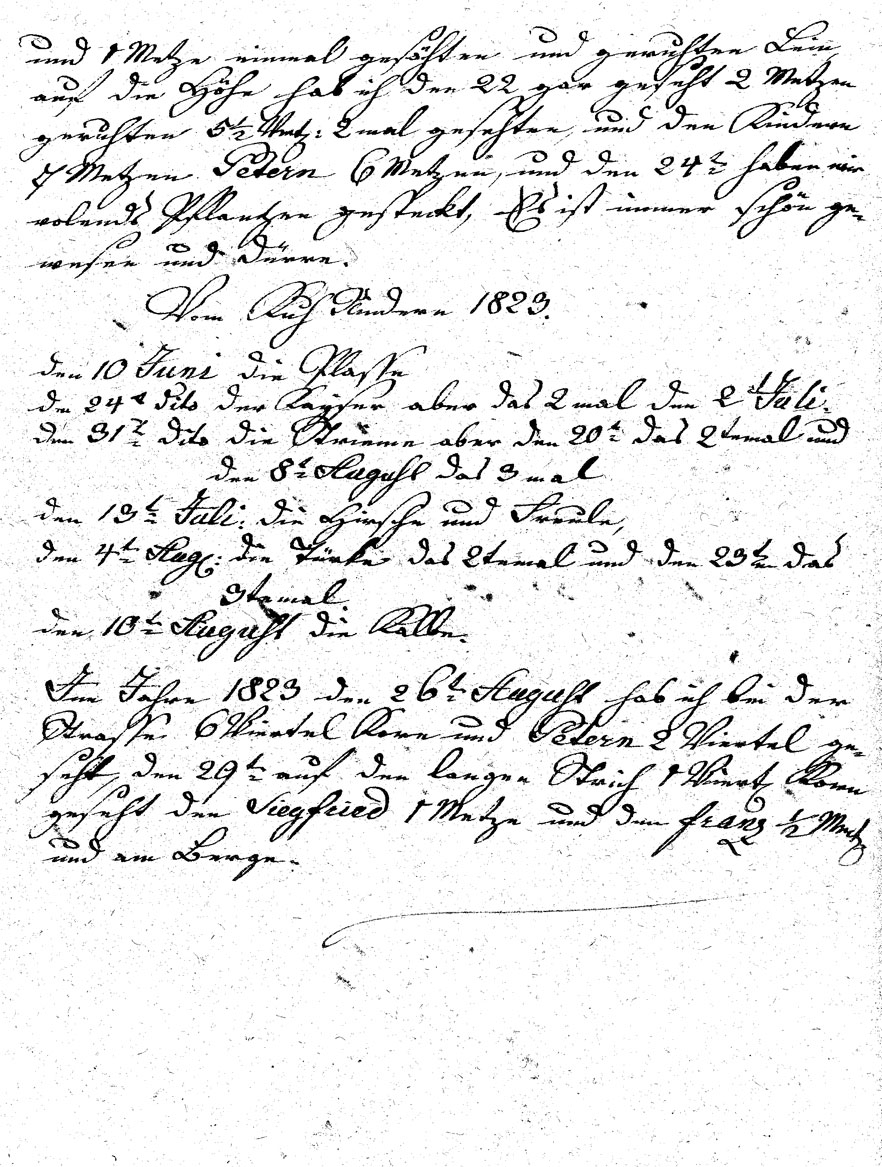 und 1 Metze einmal gesähten und geruhten Lein
auf die Höhe hab ich den 22 gar geseht 2 Metzen
geruhten 5½ Mtz: 2 mal gesehten, und den Kindern
7 Metzen Petern 6 Metzen, und den 24t haben wir
volends Pflantzen gesteckt, Es ist immer schön ge-
wesen und dürre.
Vom Kuh Rindern 1823.
den 10 Juni die Plasse
den 24t dito der Kayser aber das 2 mal den 2t Juli.
den 31t dito die Strieme aber den 20t das 2temal und
den 8t August das 3 mal
den 13t Juli: die Hirsche und Freule,
den 4t Aug: die Türke das 2temal und den 23t das
3temal.
den 10t August die Kalbe.
Im Jahre 1823 den 26t August hab ich bei der
Strasse 6 Viertel Korn und Petern 2 Viertel ge-
seht, den 29t auf den langen Strich 1 Viert Korn
geseht den Siegfried 1 Metze und den franz ½ Metz
und am Berge.